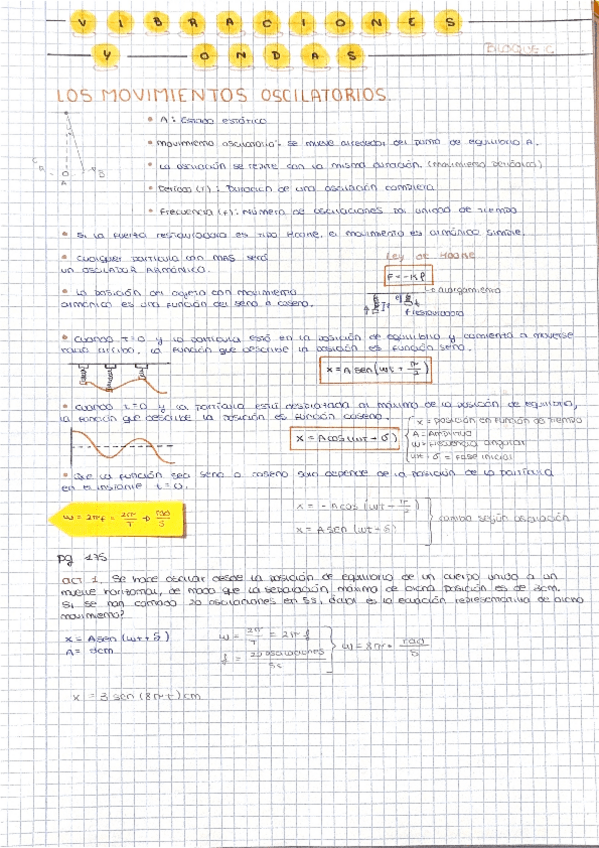 VIBRACIONES
Y ONDAS
BLOQUE C
LOS MOVIMIENTOS OSCILATORIOS.
• A: Estado estático
• Movimiento oscilatorio: se mueve alrededor del punto de equilibrio A.
• La oscilación se repite con la misma duración. (movimiento periódico)
• Período (T): Duración de una oscilación completa
• Frecuencia (f): Número de oscilaciones por unidad de tiempo
A
B
• Si la fuerza restauradora es tipo Hooke, el movimiento es armónico simple.
• Cualquier partícula con MAS será
un OSCILADOR ARMÓNICO.
Ley de Hooke
F = -K
• La posición del objeto con movimiento
armónico es una función del seno o coseno.
alargamiento
F restauradora
• Cuando t=0 y la partícula está en la posición de equilibrio y comienza a moverse
hacia arriba, la función que describe la posición es función seno.
x = A sen (wt + π/2)
• Cuando t=0 y la partícula está desplazada al máximo de la posición de equilibrio,
la función que describe la posición es función coseno.
x = A cos (wt - δ)
x = posición en función de tiempo
A = Amplitud
w = Frecuencia angular
wt - δ = fase inicial
• Que la función sea seno o coseno solo depende de la posición de la partícula
en el instante t = 0.
w = 2πf = 2π/T → rad/s
x = - A cos (wt - π/2)
x = A sen (wt - δ)
cambia según oscilación
pg 175
act 1. Se hace oscilar desde la posición de equilibrio de un cuerpo unido a un
muelle horizontal, de modo que la separación máxima de dicha posición es de 3cm.
Si se han contado 20 oscilaciones en 5s, ¿cuál es la ecuación representativa de dicho
movimiento?
x = A sen (wt + δ)
A = 3cm
w = 2π/T = 2π f
f = 20 oscilaciones/5s
w = 8π · rad/s
x = 3 sen (8πt) cm